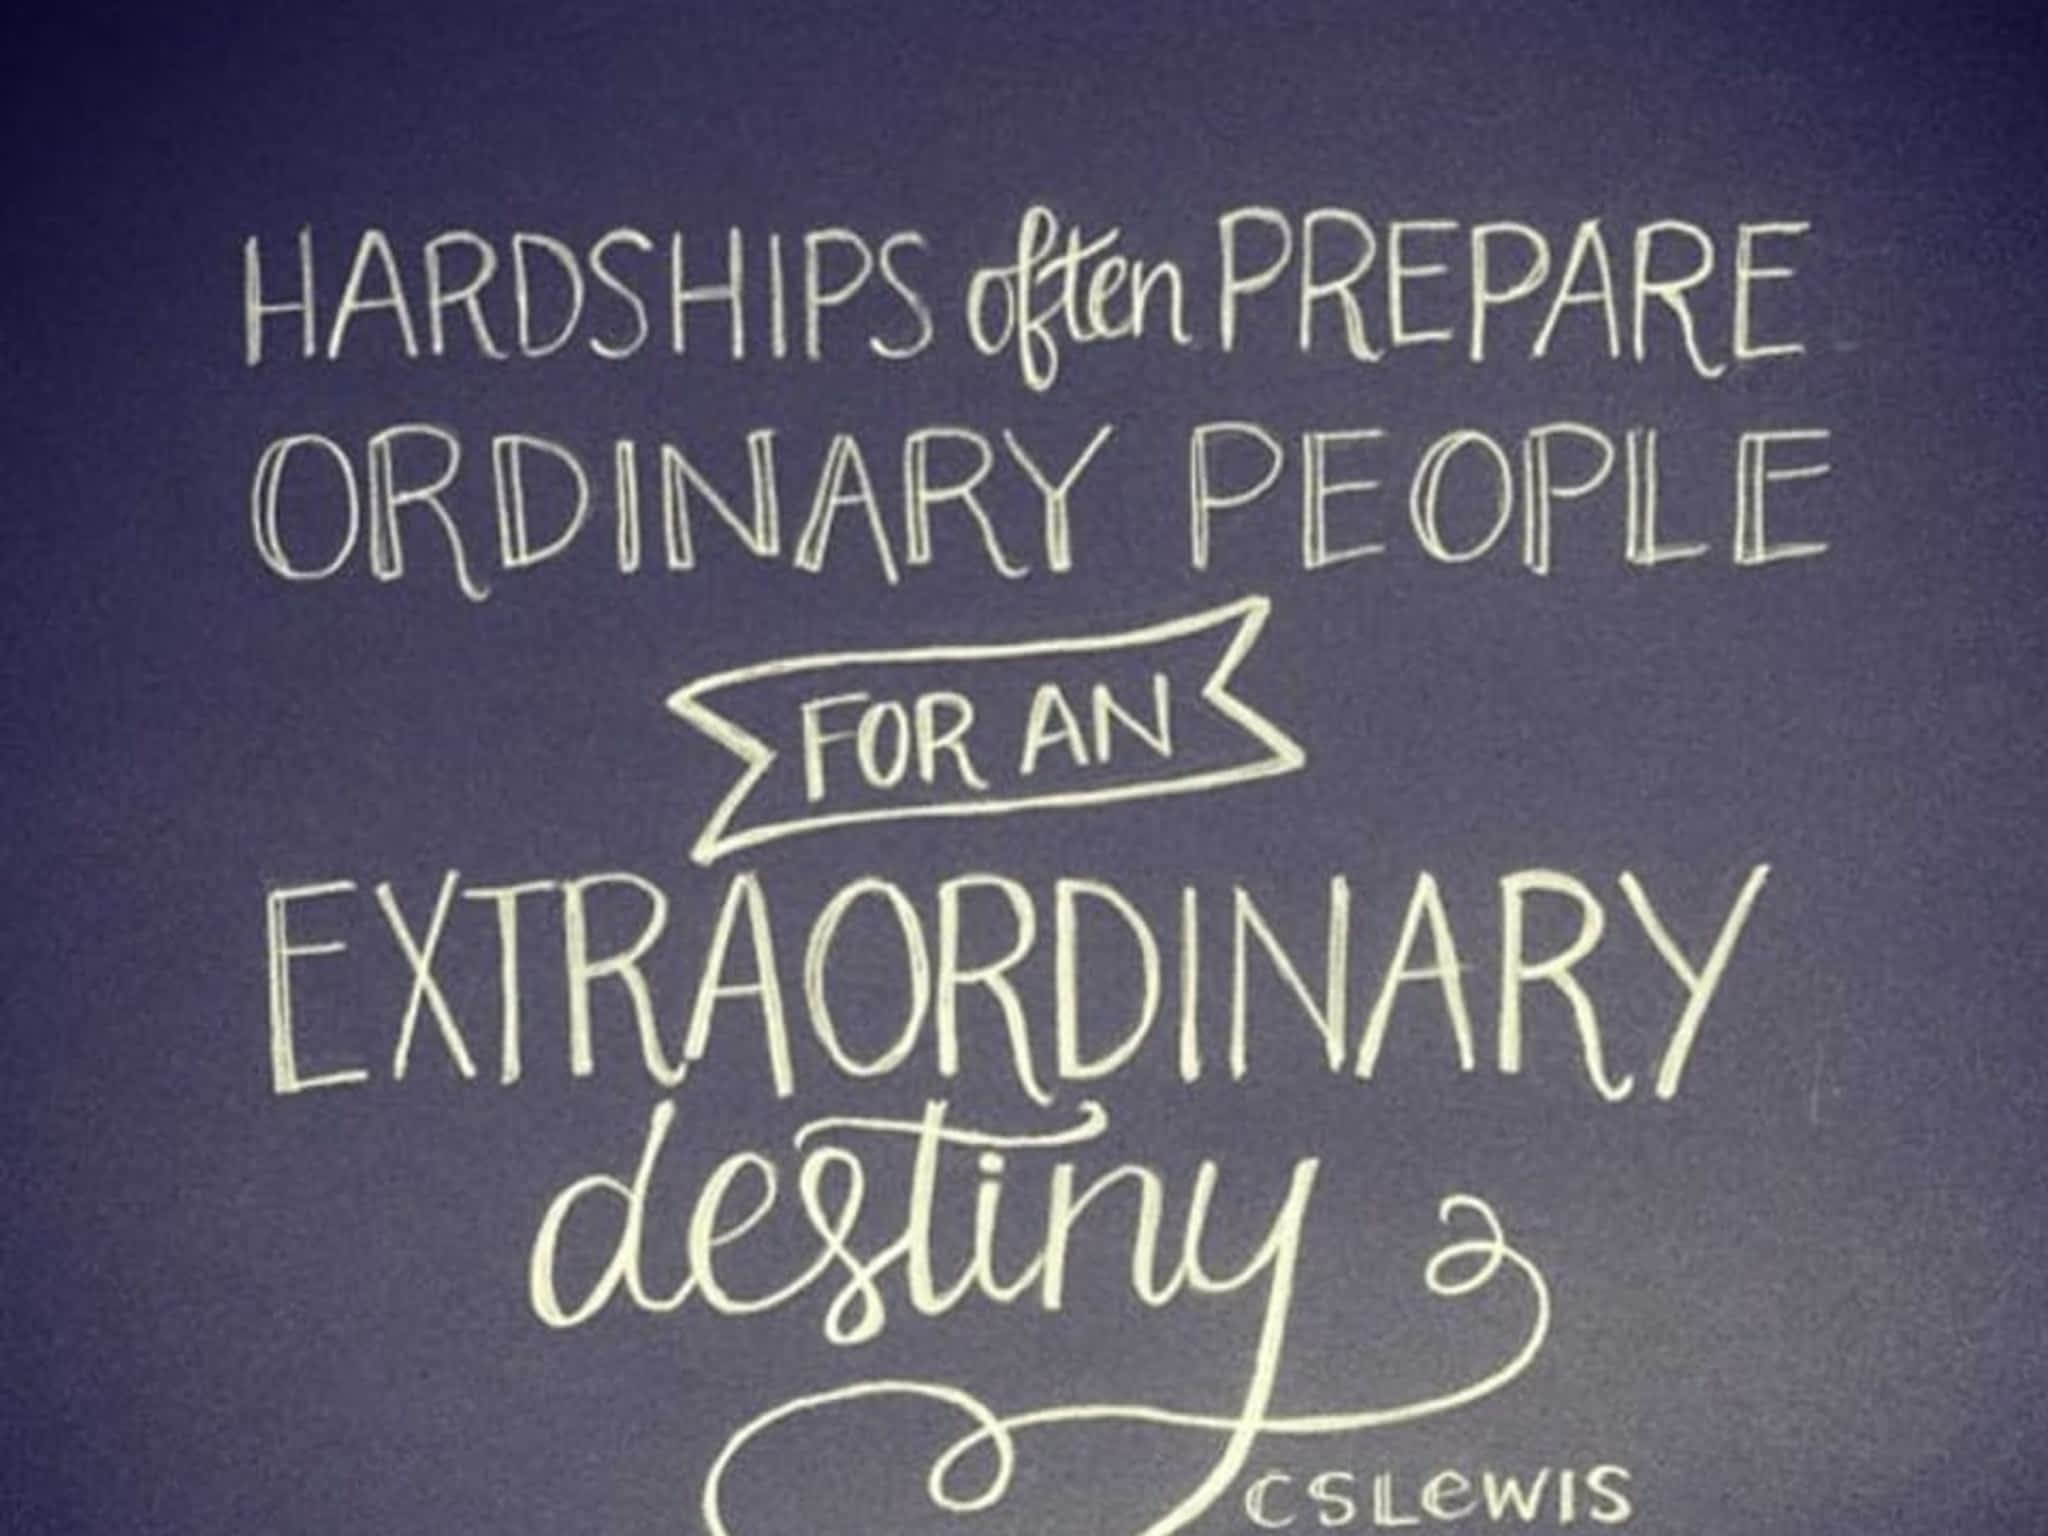 HARDSHIPS often PREPARE
ORDINARY PEOPLE
FOR AN
EXTRAORDINARY
destiny
CSLeWIS